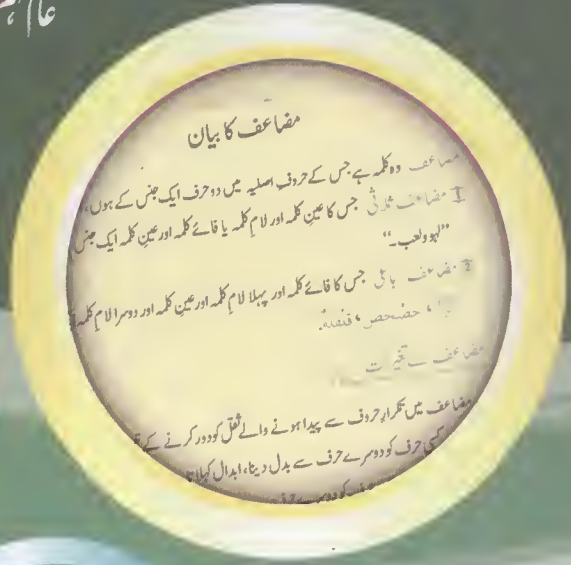 عام
مضاعف کا بیان
مضاعف وہ کلمہ ہے جس کے حروف اصلیہ میں دو حرف ایک جنس کے ہوں،
1 مضاعف ثلاثی جس کا عین کلمہ اور لام کلمہ یا فائے کلمہ اور عین کلمہ ایک جنس
”لہو ولعب۔“
2 مضاعف جس کا فائے کلمہ اور پہلا لام کلمہ اور عین کلمہ اور دوسرا لام کلمہ
حصْحص،
مضاعف تغیرات
مضاعف میں تکرارِ حروف سے پیدا ہونے والے ثقل کو دور کرنے کے
کسی حرف کو دوسرے حرف سے بدل دینا، ابدال کہلاتا
کو دوسرے حرف